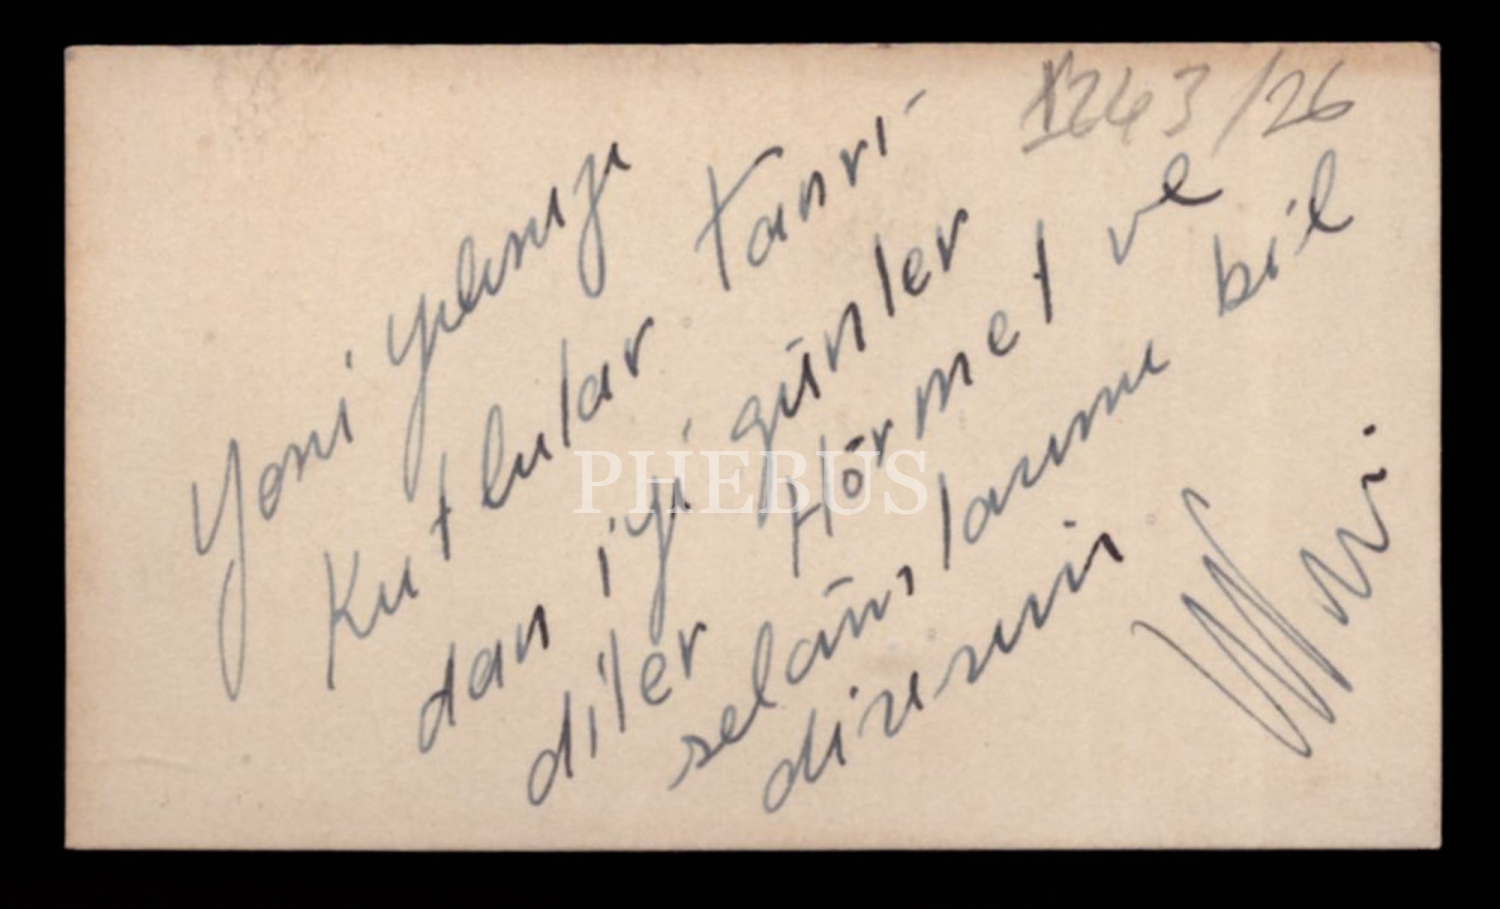 X243/26
Yeni yılınızı
Kutlular Tanrı
dan iyi günler
diler Hörmet ve
selâmlarımı bil
diririm
PHEBUS